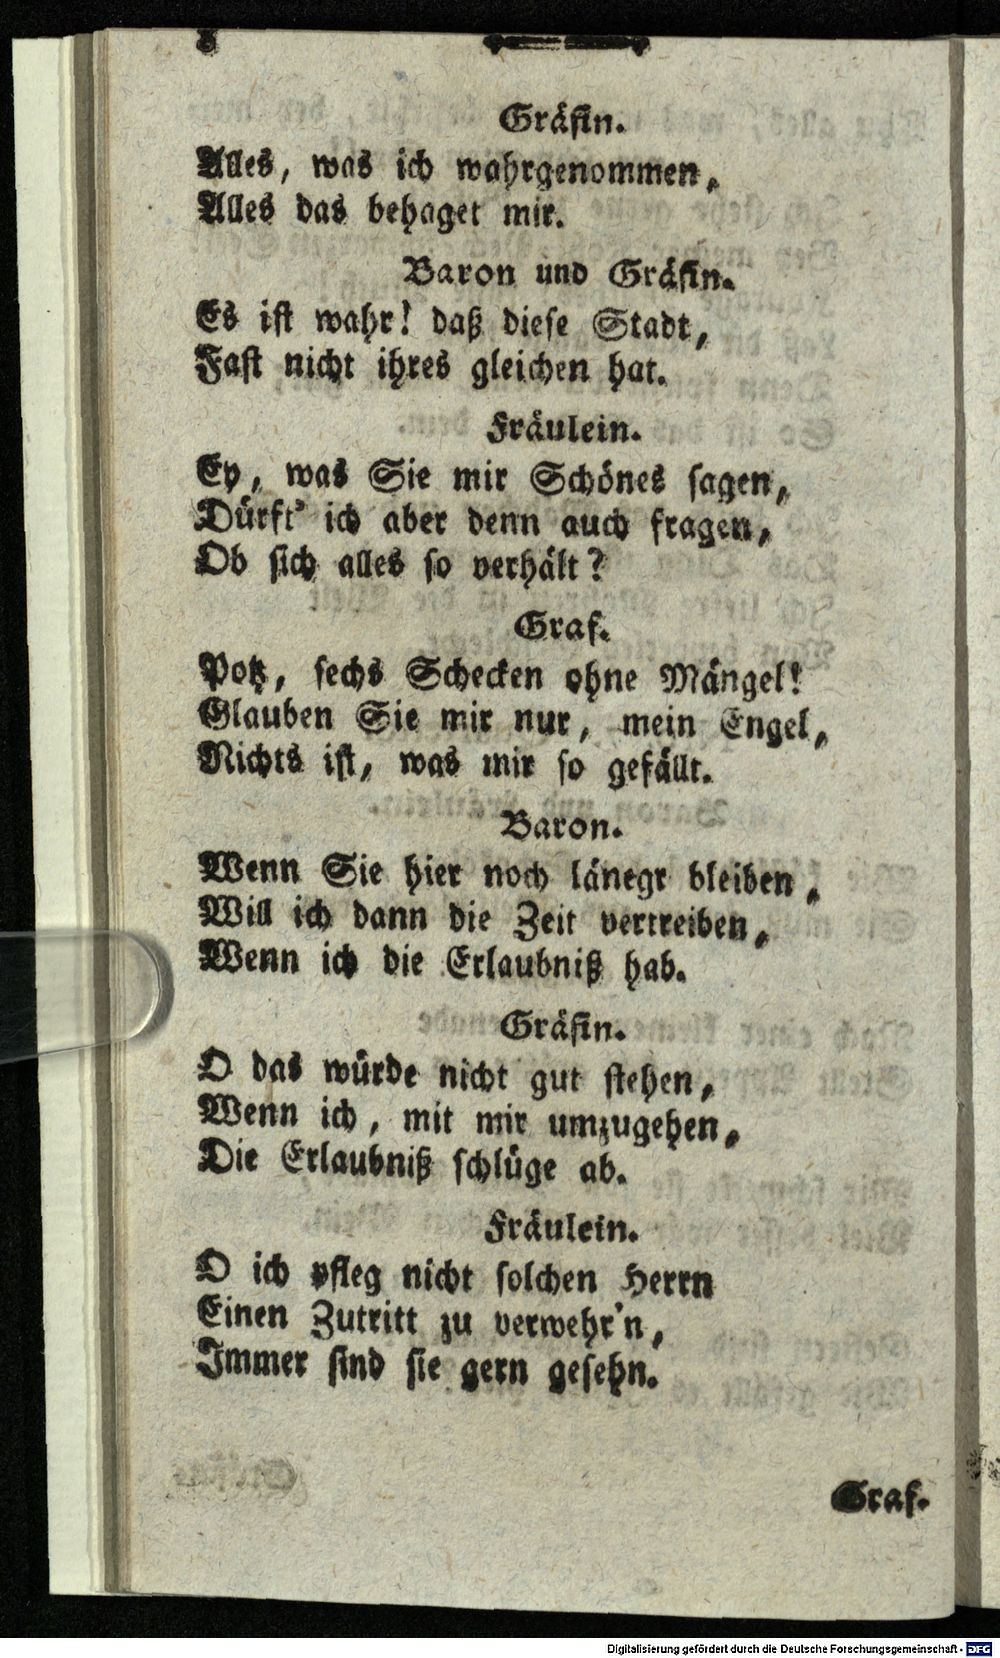 8
Gräfin.
Alles, was ich wahrgenommen,
Alles das behaget mir.
Baron und Gräfin.
Es ist wahr! daß diese Stadt,
Fast nicht ihres gleichen hat.
Fräulein.
Ey, was Sie mir Schönes sagen,
Dürft' ich aber denn auch fragen,
Ob sich alles so verhält?
Graf.
Potz, sechs Schecken ohne Mängel!
Glauben Sie mir nur, mein Engel,
Nichts ist, was mir so gefällt.
Baron.
Wenn Sie hier noch länegr bleiben,
Will ich dann die Zeit vertreiben,
Wenn ich die Erlaubniß hab.
Gräfin.
O das würde nicht gut stehen,
Wenn ich, mit mir umzugehen,
Die Erlaubniß schlüge ab.
Fräulein.
O ich pfleg nicht solchen Herrn
Einen Zutritt zu verwehr'n,
Immer sind sie gern gesehn.
Graf.
Digitalisierung gefördert durch die Deutsche Forschungsgemeinschaft - DFG